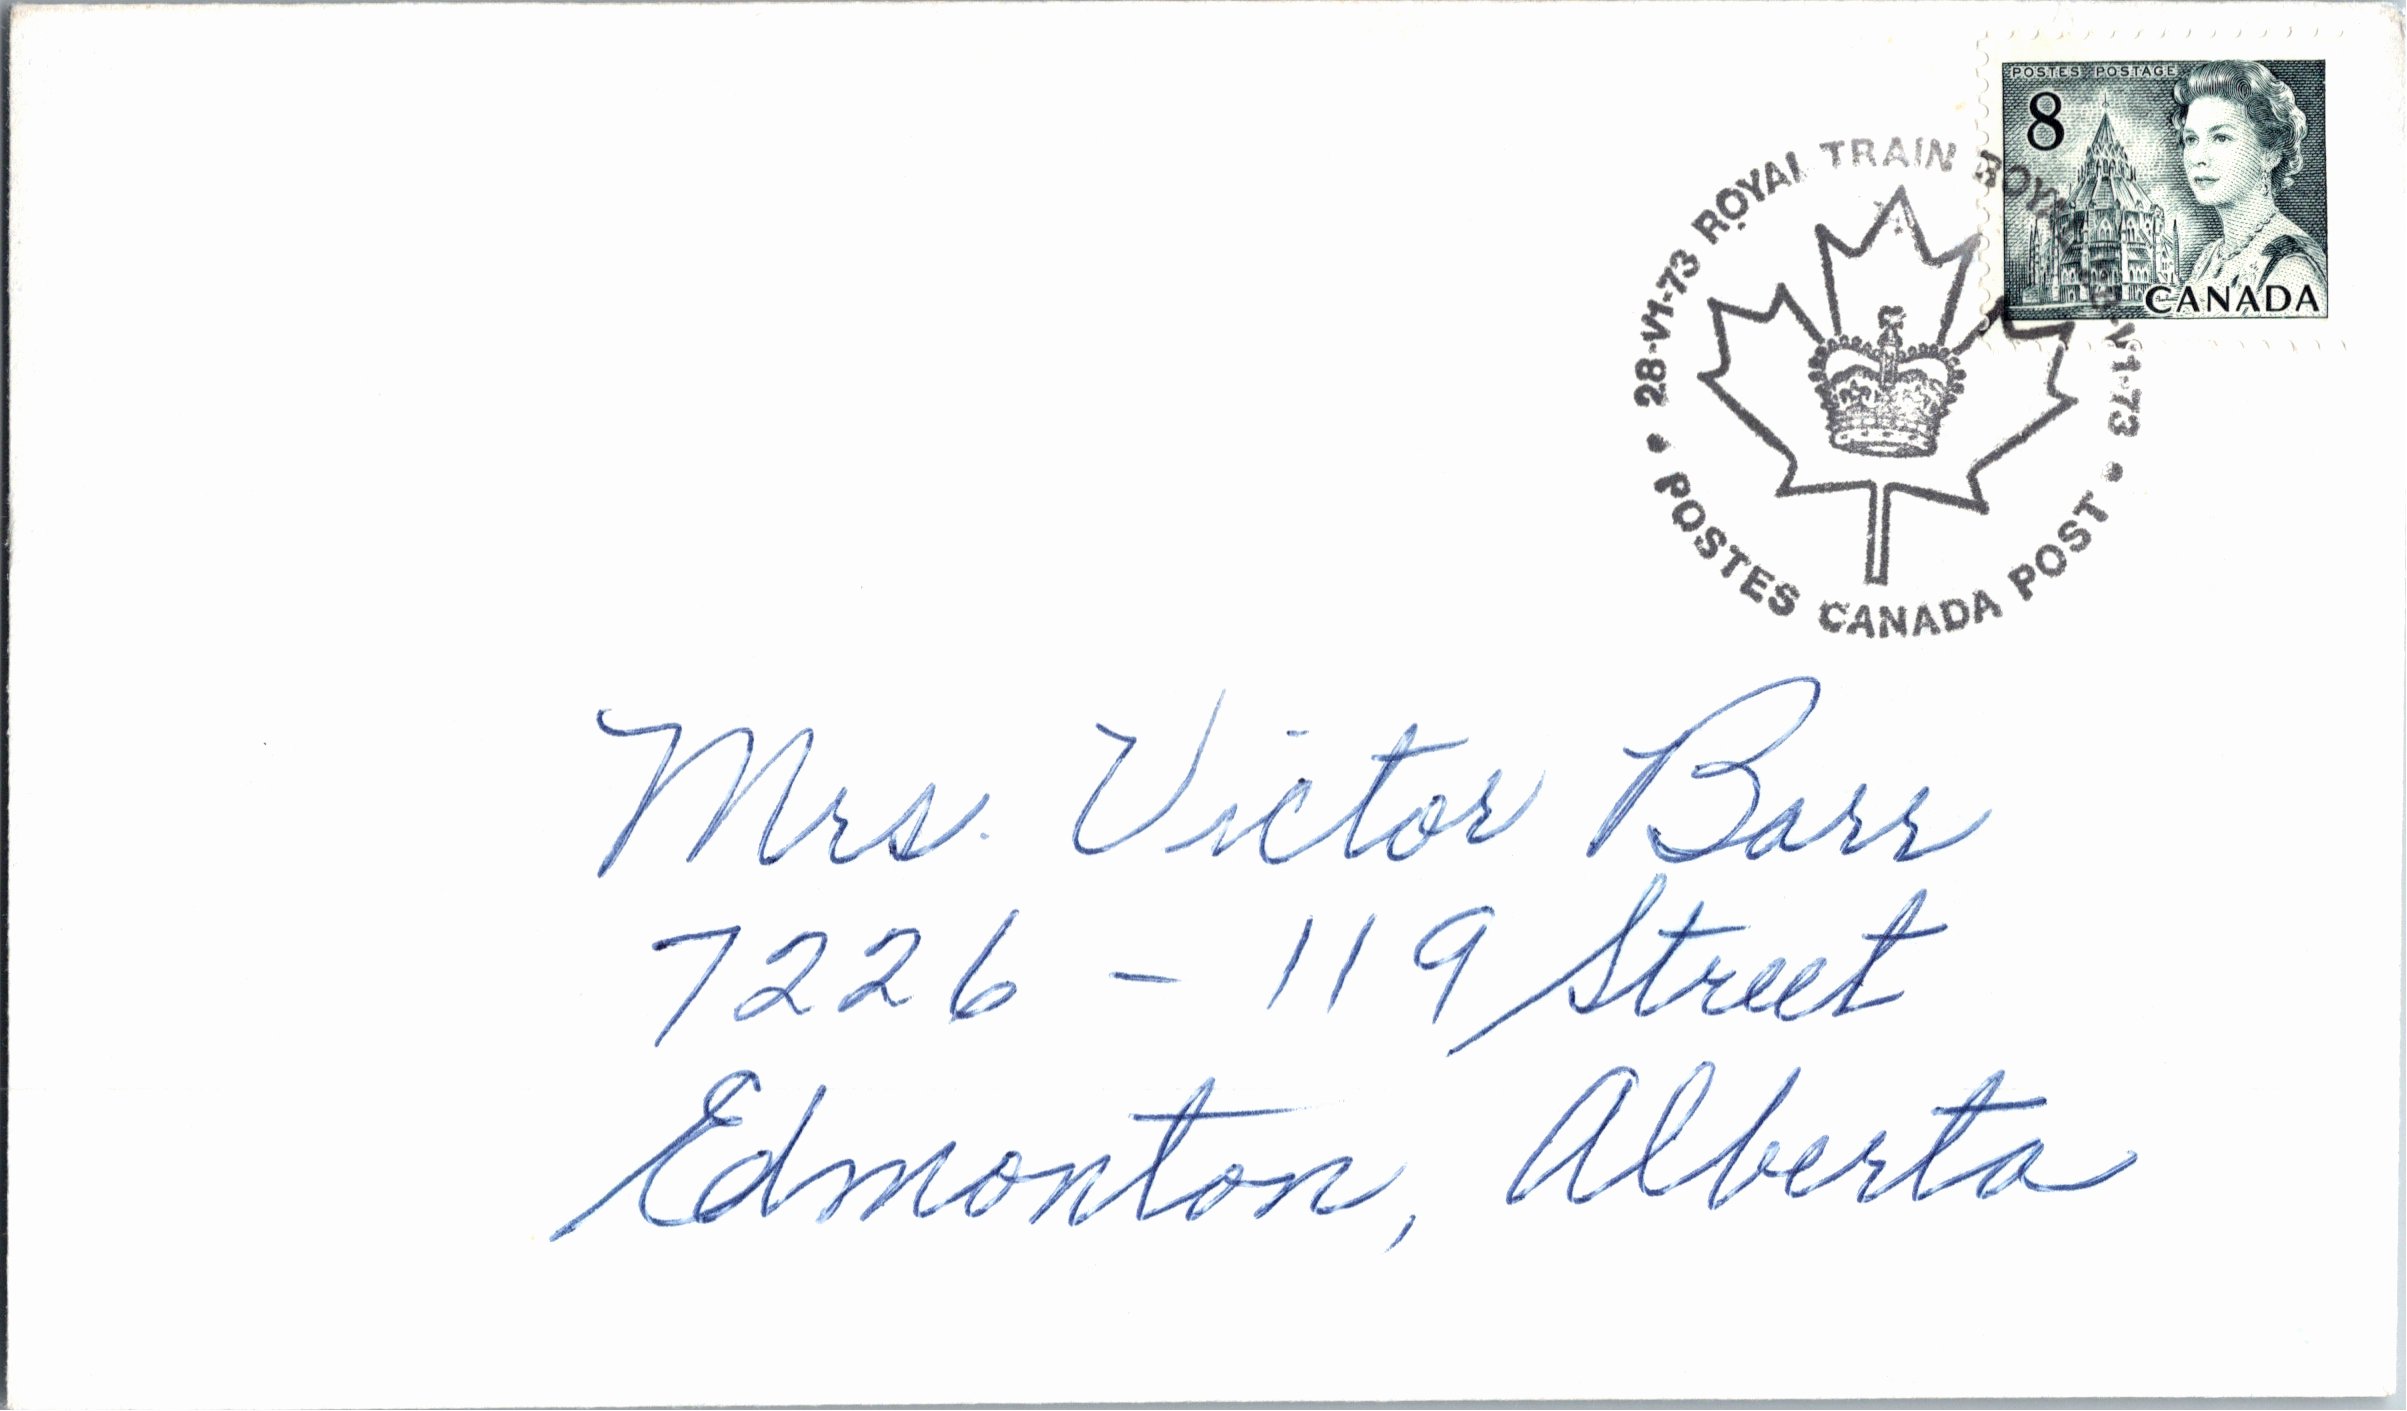 POSTES POSTAGE
8
CANADA
28-VI-73 ROYAL TRAIN ROYAL -VI-73
POSTES CANADA POST
Mrs. Victor Barr
7226 - 119 Street
Edmonton, Alberta